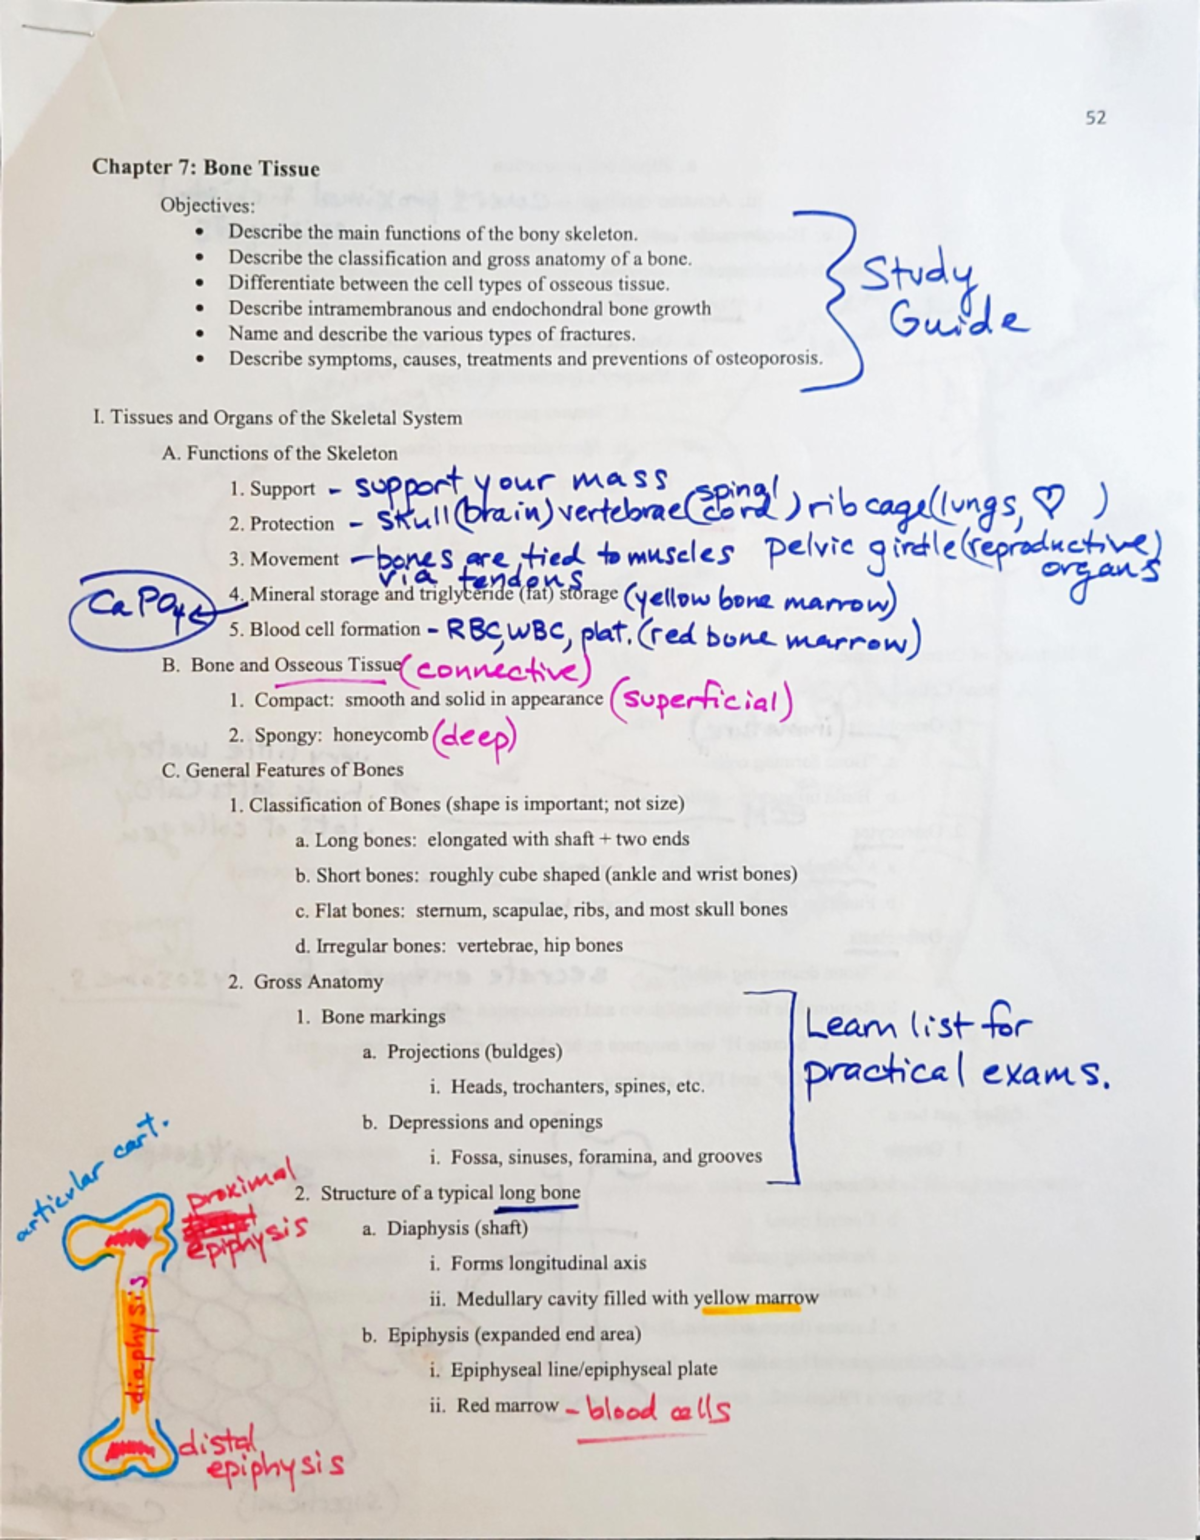 52
Chapter 7: Bone Tissue
Objectives:
• Describe the main functions of the bony skeleton.
• Describe the classification and gross anatomy of a bone.
• Differentiate between the cell types of osseous tissue.
• Describe intramembranous and endochondral bone growth
• Name and describe the various types of fractures.
• Describe symptoms, causes, treatments and preventions of osteoporosis.
Study
Guide
I. Tissues and Organs of the Skeletal System
A. Functions of the Skeleton
1. Support - support your mass
2. Protection - skull(brain) vertebrae(spinal cord) ribcage(lungs, ♡ )
pelvic girdle(reproductive)
organs
3. Movement - bones are tied to muscles
via tendons
CaPO4
4. Mineral storage and triglyceride (fat) storage (yellow bone marrow)
5. Blood cell formation - RBC, WBC, plat. (red bone marrow)
B. Bone and Osseous Tissue (connective)
1. Compact: smooth and solid in appearance (superficial)
2. Spongy: honeycomb (deep)
C. General Features of Bones
1. Classification of Bones (shape is important; not size)
a. Long bones: elongated with shaft + two ends
b. Short bones: roughly cube shaped (ankle and wrist bones)
c. Flat bones: sternum, scapulae, ribs, and most skull bones
d. Irregular bones: vertebrae, hip bones
2. Gross Anatomy
1. Bone markings
a. Projections (buldges)
i. Heads, trochanters, spines, etc.
b. Depressions and openings
i. Fossa, sinuses, foramina, and grooves
Learn list for
practical exams.
2. Structure of a typical long bone
a. Diaphysis (shaft)
i. Forms longitudinal axis
ii. Medullary cavity filled with yellow marrow
b. Epiphysis (expanded end area)
i. Epiphyseal line/epiphyseal plate
ii. Red marrow - blood cells
articular cart.
proximal
epiphysis
diaphysis
distal
epiphysis